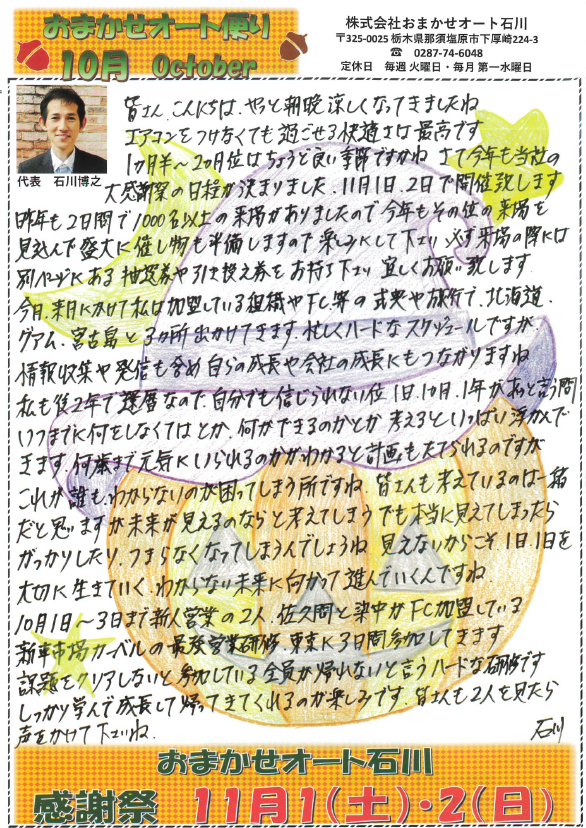 おまかせオート便り
10月 October
株式会社おまかせオート石川
〒325-0025 栃木県那須塩原市下厚崎224-3
☎ 0287-74-6048
定休日 毎週 火曜日・毎月 第一水曜日
代表 石川博之
皆さん、こんにちは、やっと朝晩涼しくなってきましたね
エアコンをつけなくても過ごせる快適さは最高です
1ヵ月半〜2ヵ月位はちょうど良い季節ですかね さて今年も当社の
大感謝祭の日程が決まりました、11月1日、2日で開催致します
昨年も2日間で1000名以上の来場がありましたので今年もその位の来場を
見込んで盛大に催し物も準備しますので楽しみにして下さい 必ず来場の際には
別ページにある抽選券や引き換え券をお持ち下さい 宜しくお願い致します
今月、来月にかけて私は加盟している組織やFC等の式典や旅行で、北海道、
グアム、宮古島と3ヵ所出かけてきます、忙しくハードなスケジュールですが、
情報収集や発信も含め自らの成長や会社の成長にもつながりますね
私も後2年で還暦なので、自分でも信じられない位1日、10月、1年があっと言う間
いつまでに何をしなくてはとか、何ができるのかとか 考えるといっぱい浮かんで
きます、何歳まで元気にいられるのかがわかると計画も立てられるのですが
これが誰もわからないのが困ってしまう所ですね、皆さんも考えているのは一緒
だと思いますが未来が見えるのならと考えてしまう でも本当に見えてしまったら
がっかりしたり、つまらなくなってしまうんでしょうね 見えないからこそ1日、1日を
大切に生きていく、わからない未来に向かって進んでいくんですね、
10月1日〜3日まで新人営業の2人、佐久間と 中がFC加盟している
新車市場カーベルの最強営業研修、東京に3日間参加してきます
課題をクリアしないと参加している全員が帰れないと言うハードな研修です
しっかり学んで成長して帰ってきてくれるのが楽しみです、皆さんも2人を見たら
声をかけて下さいね、
石川
おまかせオート石川
感謝祭 11月1(土)・2(日)